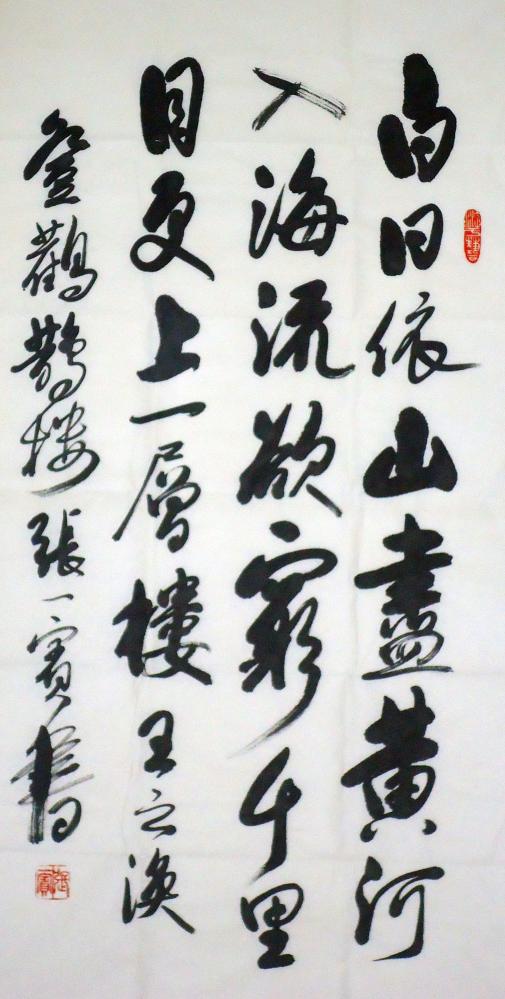 白日依山盡黄河
入海流欲窮千里
目更上一層樓王之渙
登鸛鵲樓張一賓書